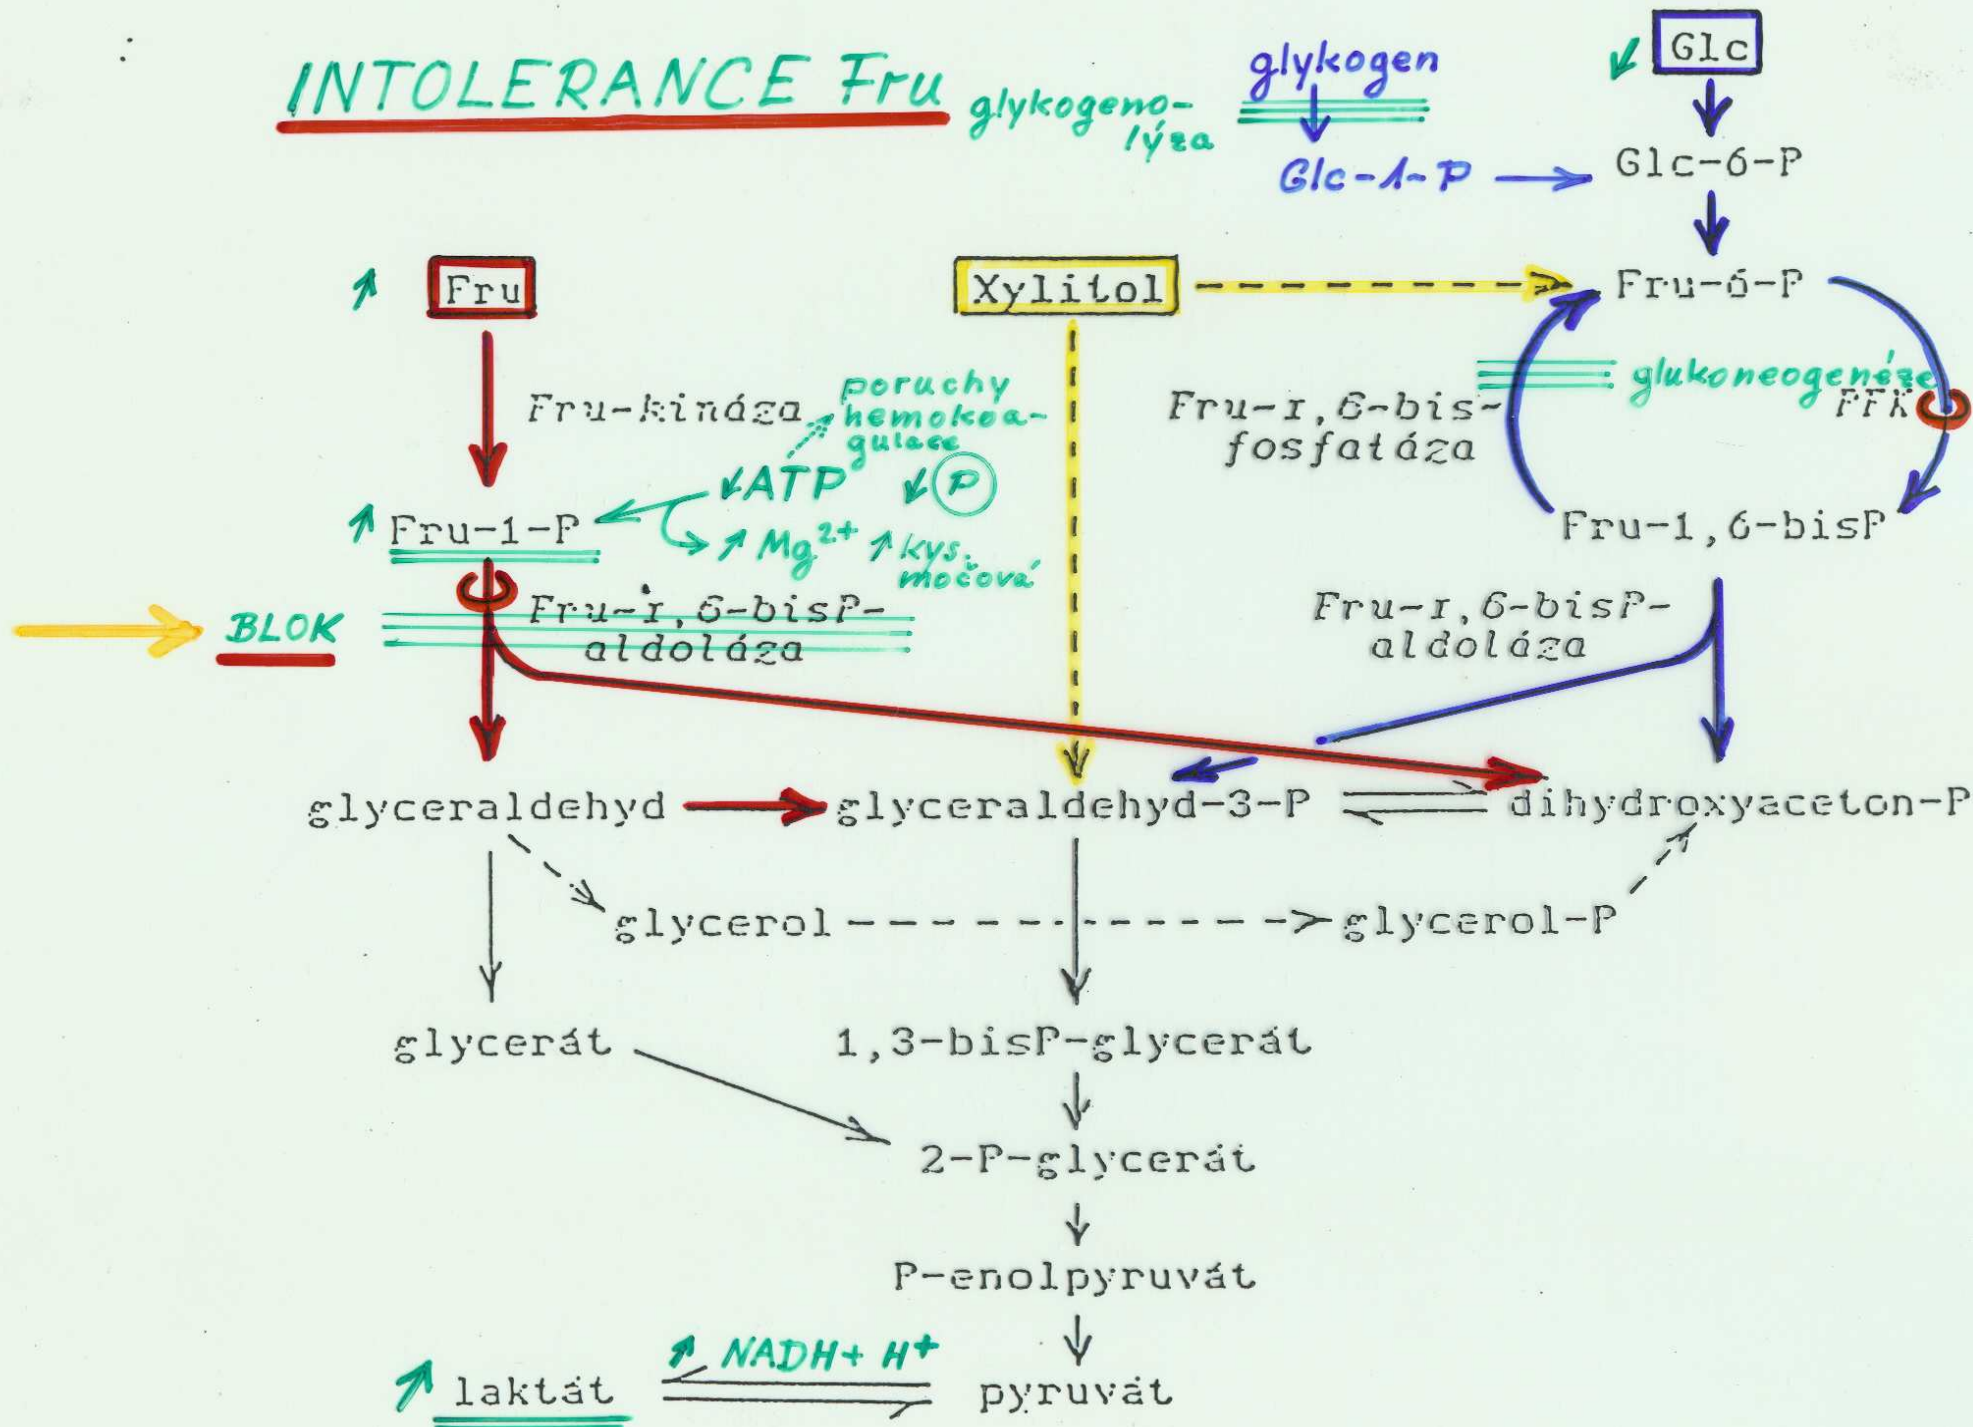 INTOLERANCE Fru
glykogeno-
lýza
glykogen
Glc
Glc-1-P
Glc-6-P
Fru
Xylitol
Fru-6-P
Fru-kináza
poruchy
hemokoa-
gulace
ATP
P
Fru-1,6-bis-
fosfatáza
glukoneogenéze
PFK
Fru-1-P
Mg2+
kys.
močová
Fru-1,6-bisP
BLOK
Fru-1,6-bisP-
aldoláza
Fru-1,6-bisP-
aldoláza
glyceraldehyd
glyceraldehyd-3-P
dihydroxyaceton-P
glycerol
glycerol-P
glycerát
1,3-bisP-glycerát
2-P-glycerát
P-enolpyruvát
NADH+ H+
laktát
pyruvát